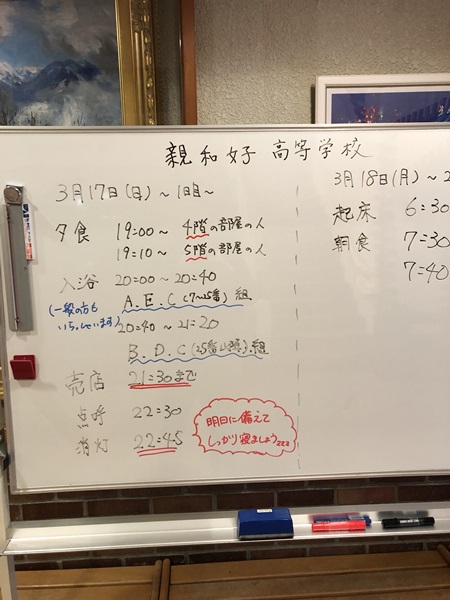 親和好 高等学校
3月17日(日)～1日目～
夕食 19:00～ 4階の部屋の人
19:10～ 5階の部屋の人
入浴 20:00～20:40
(一般の方も
いらっしゃいます)
A.E.C(7～25番)組
20:40～21:20
B.D.C(25番以降).組
売店 21:30まで
点呼 22:30
消灯 22:45
明日に備えて
しっかり寝ましょうzzz
3月18日(月)～2
起床 6:30
朝食 7:30
7:40